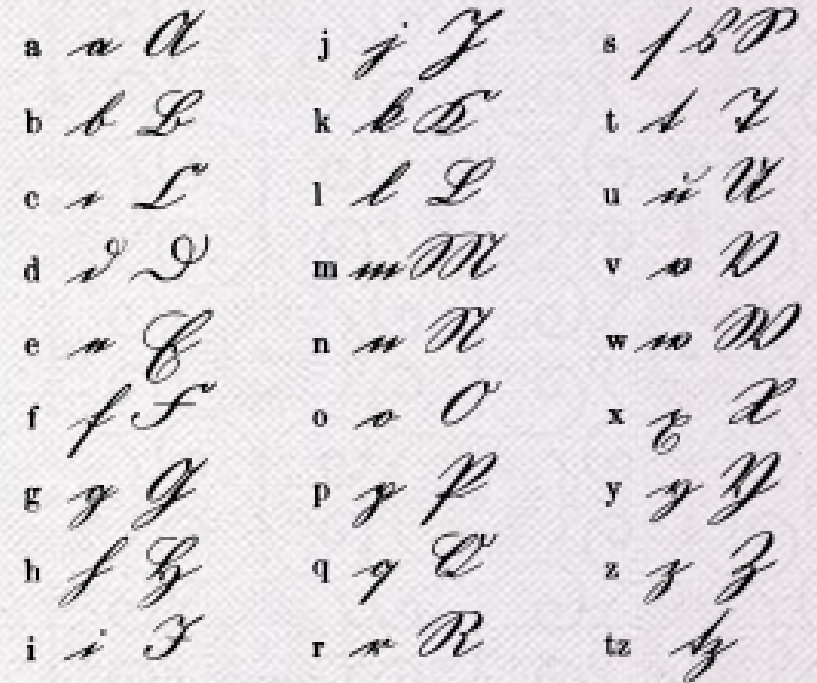 a a A
b b B
c c C
d d D
e e E
f f F
g g G
h h H
i i I
j j J
k k K
l l L
m m M
n n N
o o O
p p P
q q Q
r r R
s ſ s S
t t T
u u U
v v V
w w W
x x X
y y Y
z z Z
tz tz